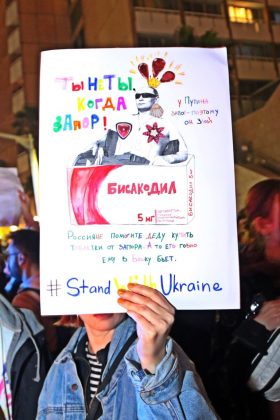 Ты не ты,
когда
запор!
у Путина
запор-поэтому
он злой
Бисакодил
Бисакодил 5мг
5 мг
Россияне помогите деду купить
таблетки от запора. А то его говно
ему в бошку бьёт.
#StandWithUkraine